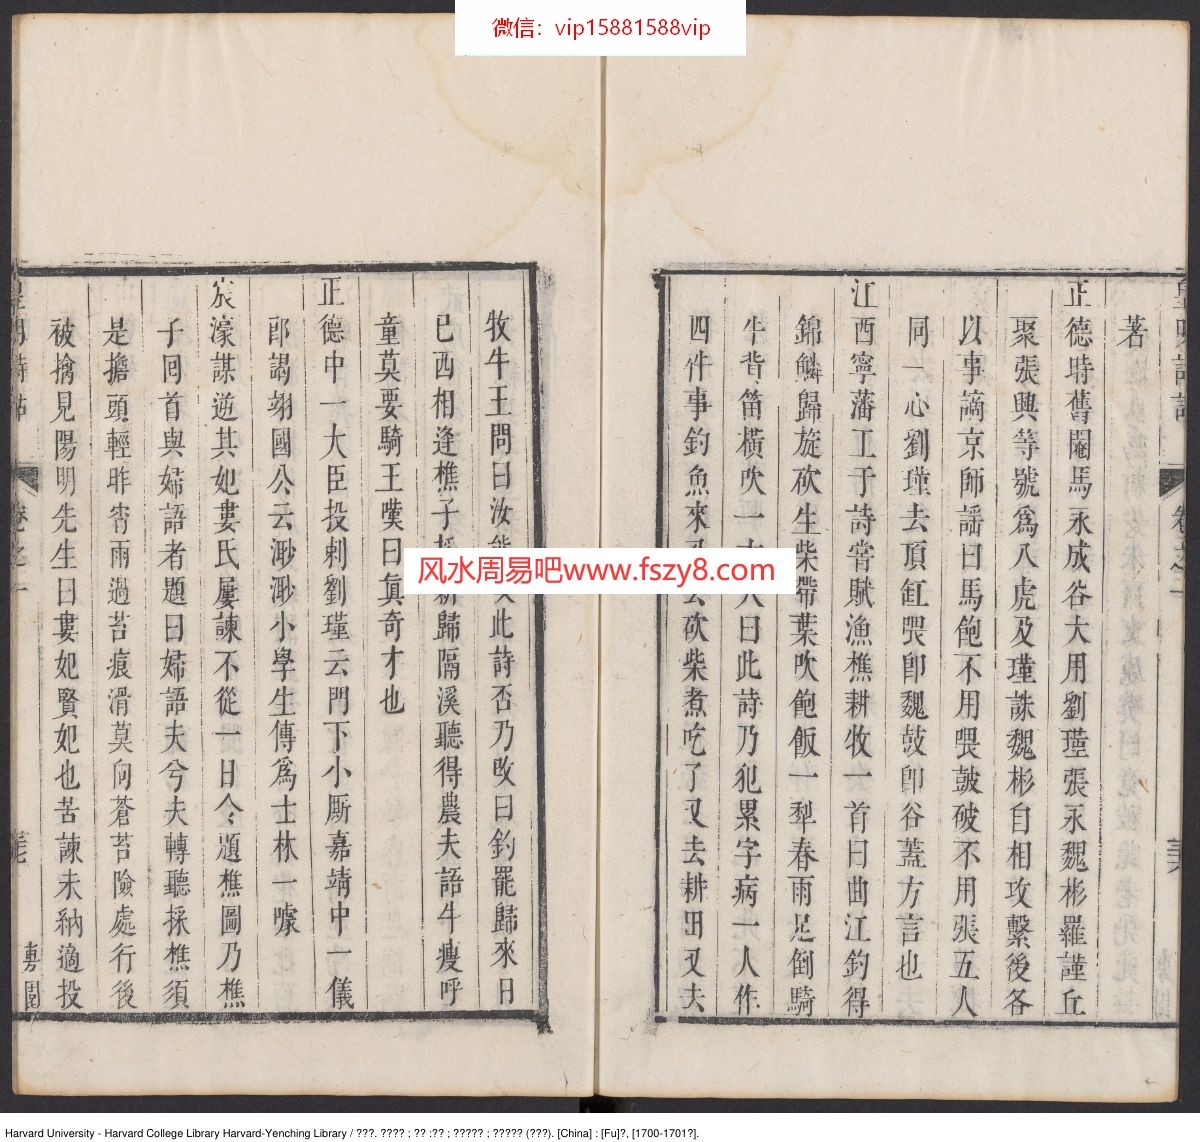 微信：vip15881588vip
著
正德時舊閹馬永成谷大用劉瑾張永魏彬羅謹丘
聚張興等號爲八虎及瑾誅魏彬自相攻繫後各
以事謫京師謡曰馬飽不用喂皷破不用張五人
同一心劉瑾去頂缸喂卽魏鼓卽谷蓋方言也
江西寧藩工于詩嘗賦漁樵耕牧一首曰曲江釣得
錦鱗歸旋砍生柴帶葉吹飽飯一犁春雨足倒騎
牛背笛橫吹一士人曰此詩乃犯累字病一人作
四件事釣魚來又去砍柴煮吃了又去耕田又去
牧牛王問曰汝能改此詩否乃改曰釣罷歸來日
已西相逢樵子採薪歸隔溪聽得農夫語牛瘦呼
童莫要騎王嘆曰眞奇才也
正德中一大臣投刺劉瑾云門下小厮嘉靖中一儀
郎謁翊國公云渺渺小學生傳爲士林一噱
宸濠謀逆其妃婁氏屢諫不從一日令題樵圖乃樵
子囘首與婦語者題曰婦語夫兮夫轉聽採樵須
是擔頭輕昨宵雨過苔痕滑莫向蒼苔險處行後
被擒見陽明先生曰婁妃賢妃也苦諫未納適投
卷之一
風水周易吧www.fszy8.com
Harvard University - Harvard College Library Harvard-Yenching Library / ???. ???? ; ?? :?? ; ????? ; ????? (???). [China] : [Fu]?, [1700-1701?].